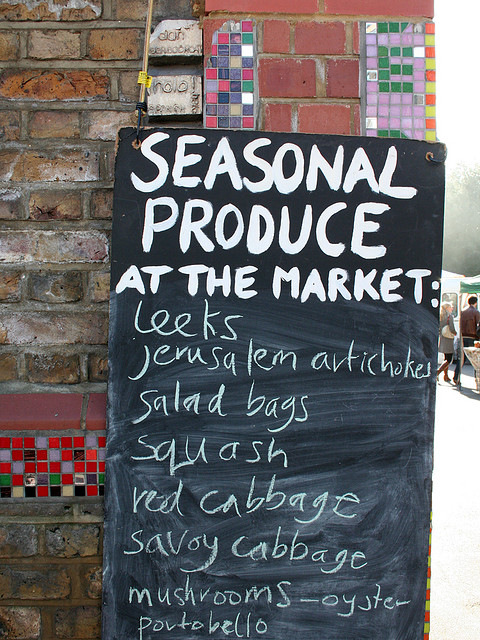 SEASONAL
PRODUCE
AT THE MARKET:
leeks
Jerusalem artichokes
Salad bags
Squash
red cabbage
savoy cabbage
mushrooms - oyster
portobello